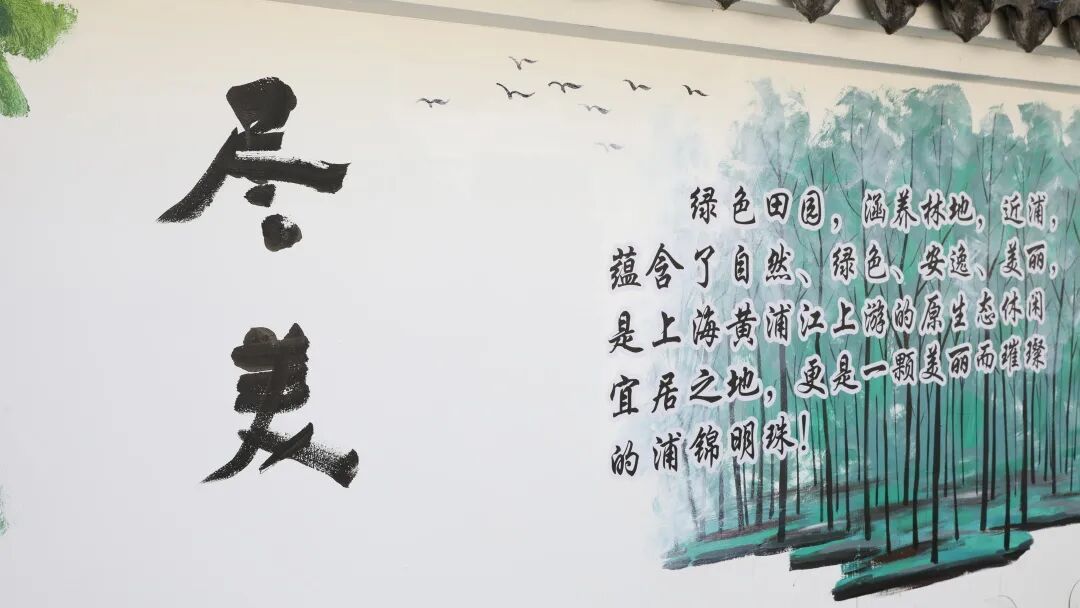 尽美
绿色田园，涵养林地，近浦，
蕴含了自然、绿色、安逸、美丽，
是上海黄浦江上游的原生态休闲
宜居之地，更是一颗美丽而璀璨
的浦锦明珠！